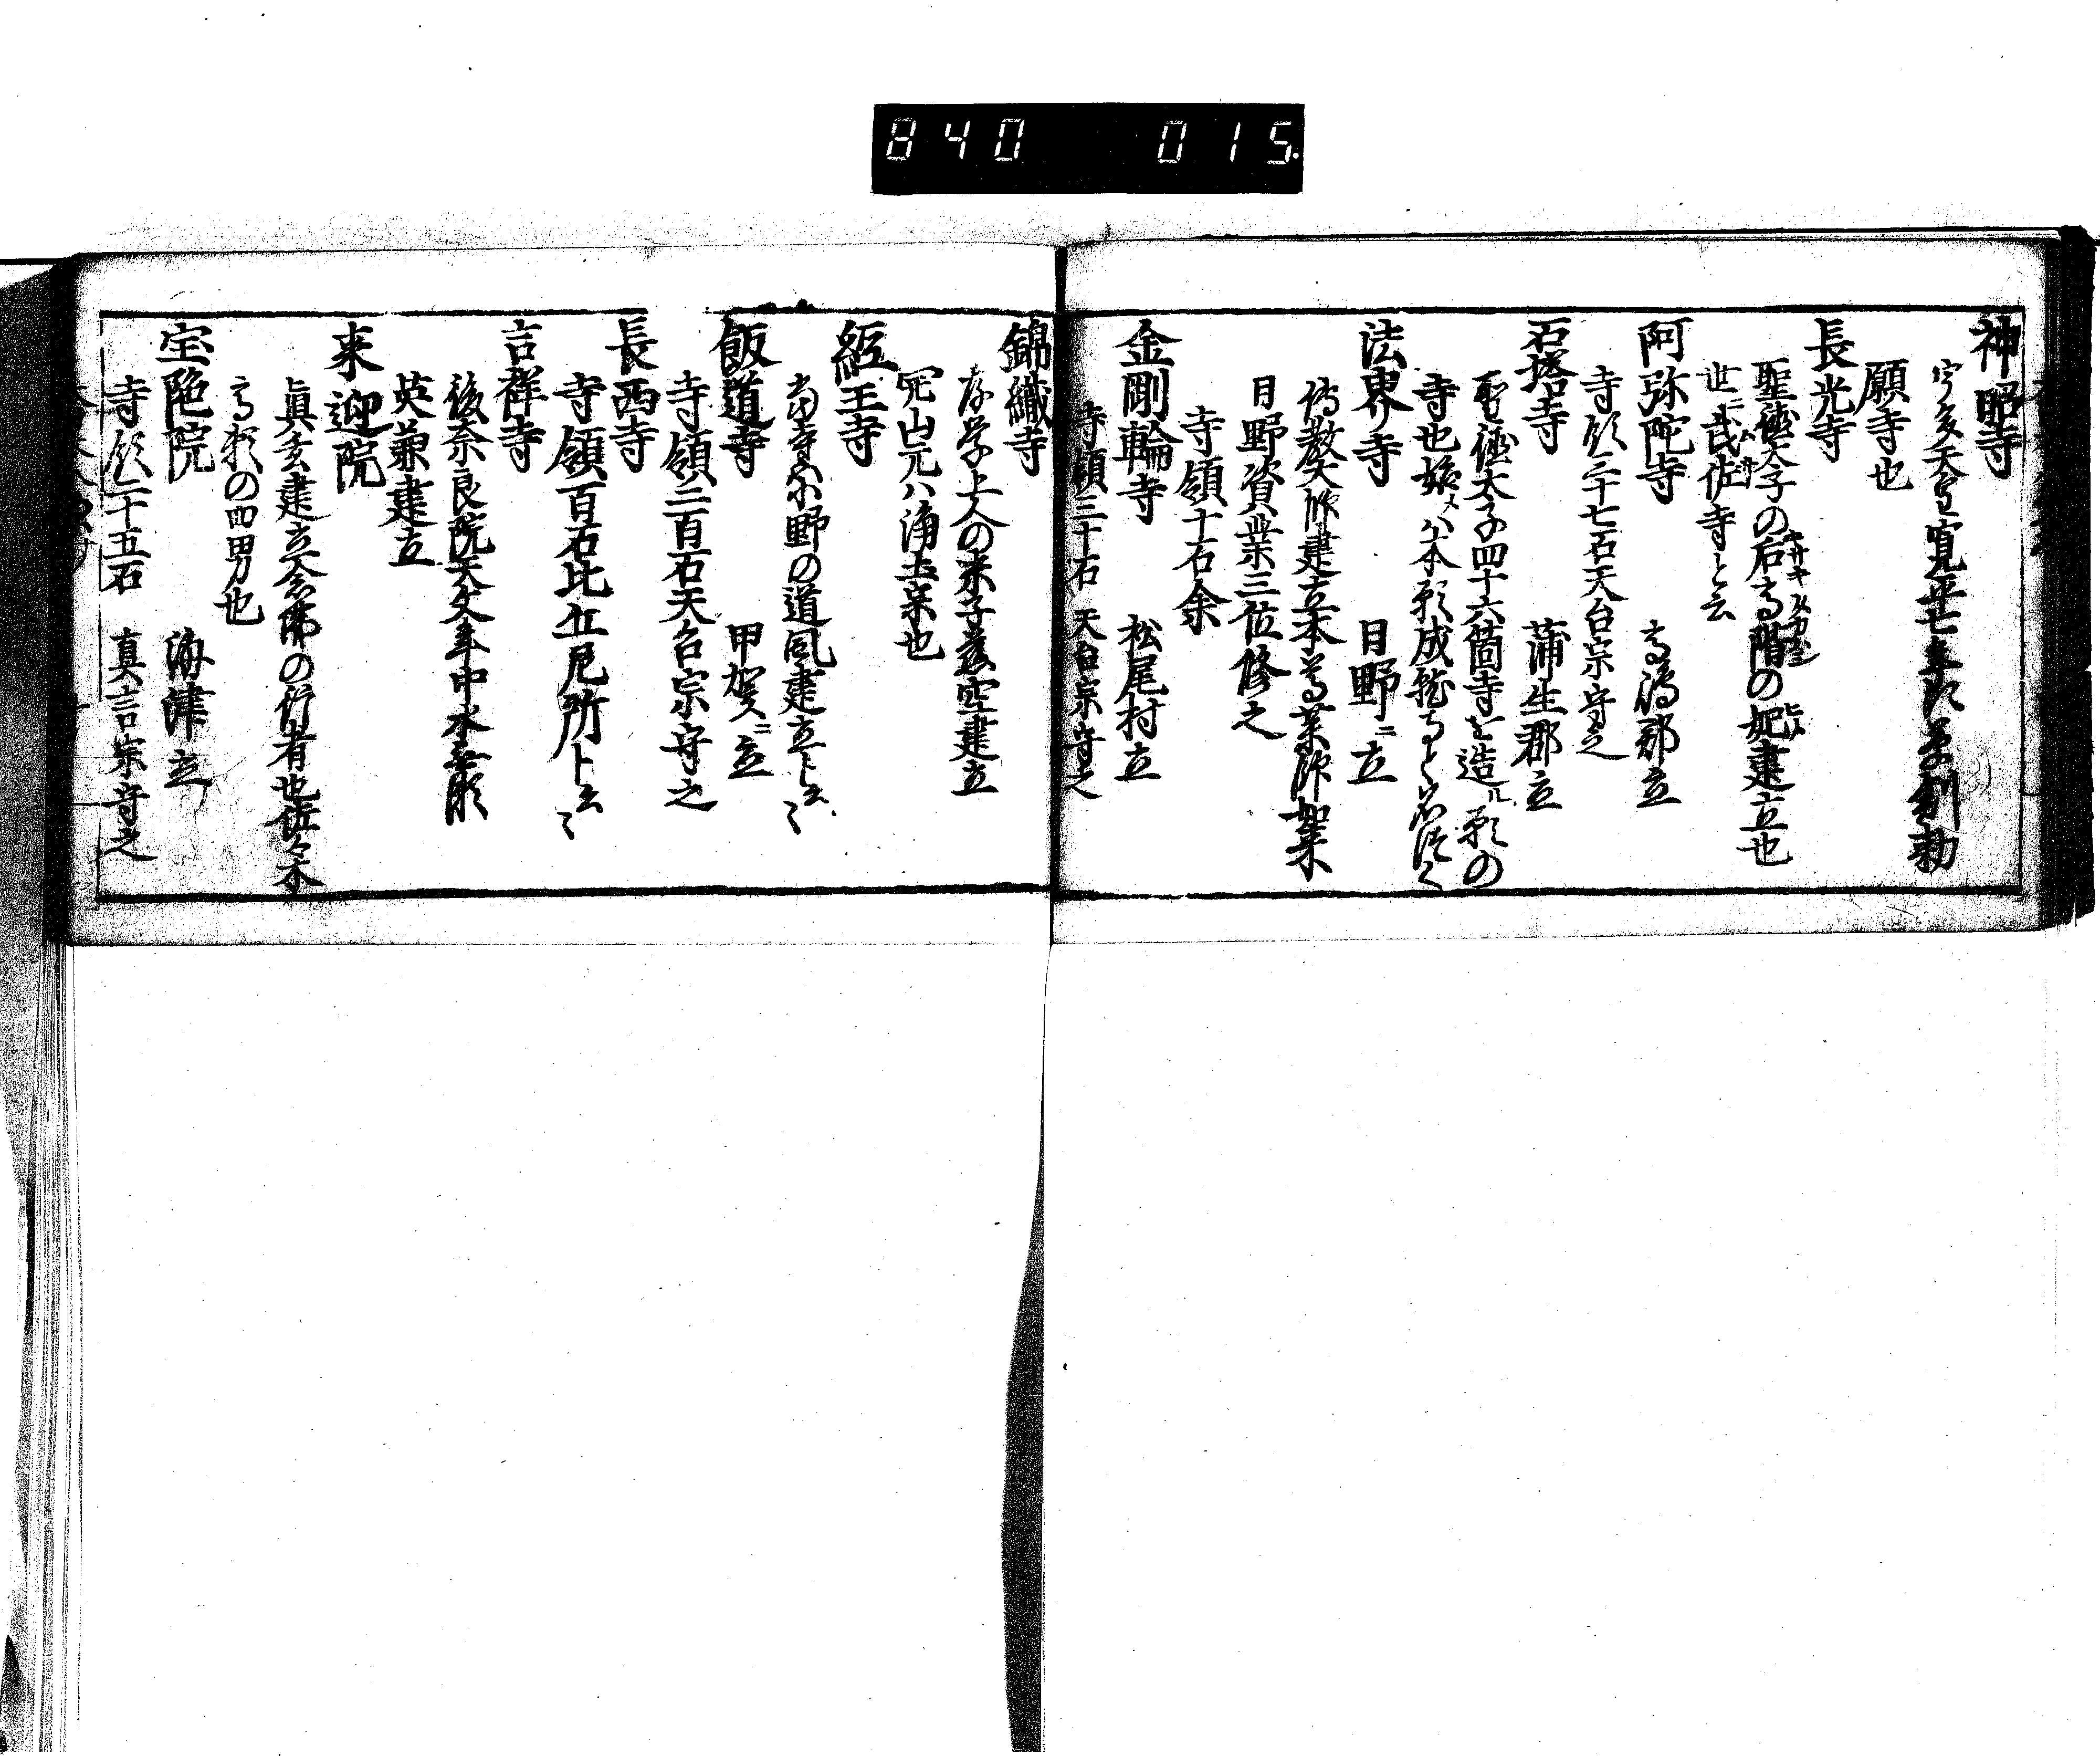 840 015.
神昭寺
宇多天皇寛平七年に草創勅
願寺也
長光寺
聖徳太子の后高階の妃建立也
世ニ武佐寺と云
阿弥陀寺 高嶋郡立
寺領三十七石天台宗守之
石塔寺 蒲生郡立
聖徳太子四十六箇寺を造ル願の
寺也 ハ本願成就
法界寺 日野ニ立
傳教大師建立本尊薬師如来
日野資業三位修之
寺領十石余
金剛輪寺 松尾村立
寺領三十石 天台宗守之
錦織寺
存学上人の末子慈空建立
開山元ハ浄土宗也
経王寺
当寺ハ小野の道風建立と云〻
飯道寺 甲賀ニ立
寺領二百石天台宗守之
長西寺
寺領百石比丘尼所ト云〻
吉祥寺
後奈良院天文年中水
英兼建立
来迎院
眞玄建立念佛の行者也佐々木
高頼の四男也
宝陀院 海津立
寺領二十五石 真言宗守之